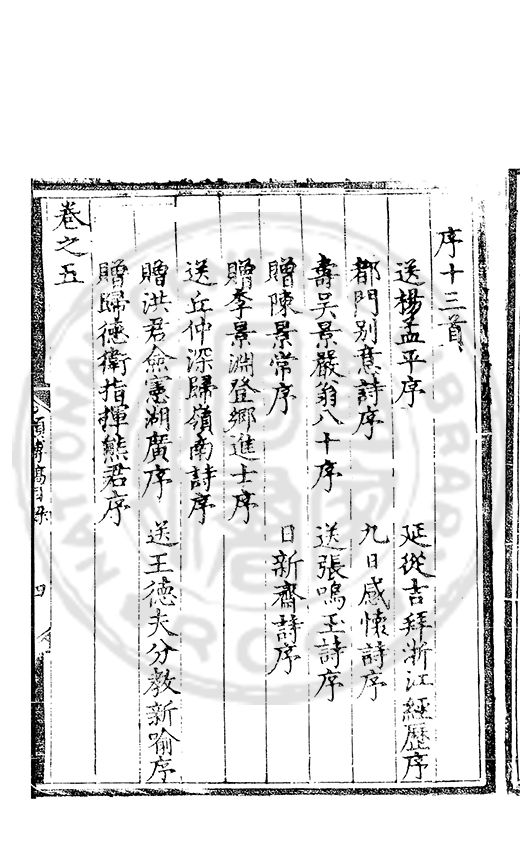 序十三首
送楊孟平序　延從吉拜浙江經歷序
都門别意詩序　九日感懷詩序
壽吳景嚴翁八十序　送張鳴玉詩序
贈陳景常序　日新齋詩序
贈李景淵登鄉進士序
送丘仲深歸嶺南詩序
贈洪君僉憲湖廣序　送王德夫分教新喻序
贈歸德衛指揮熊君序
卷之五
四